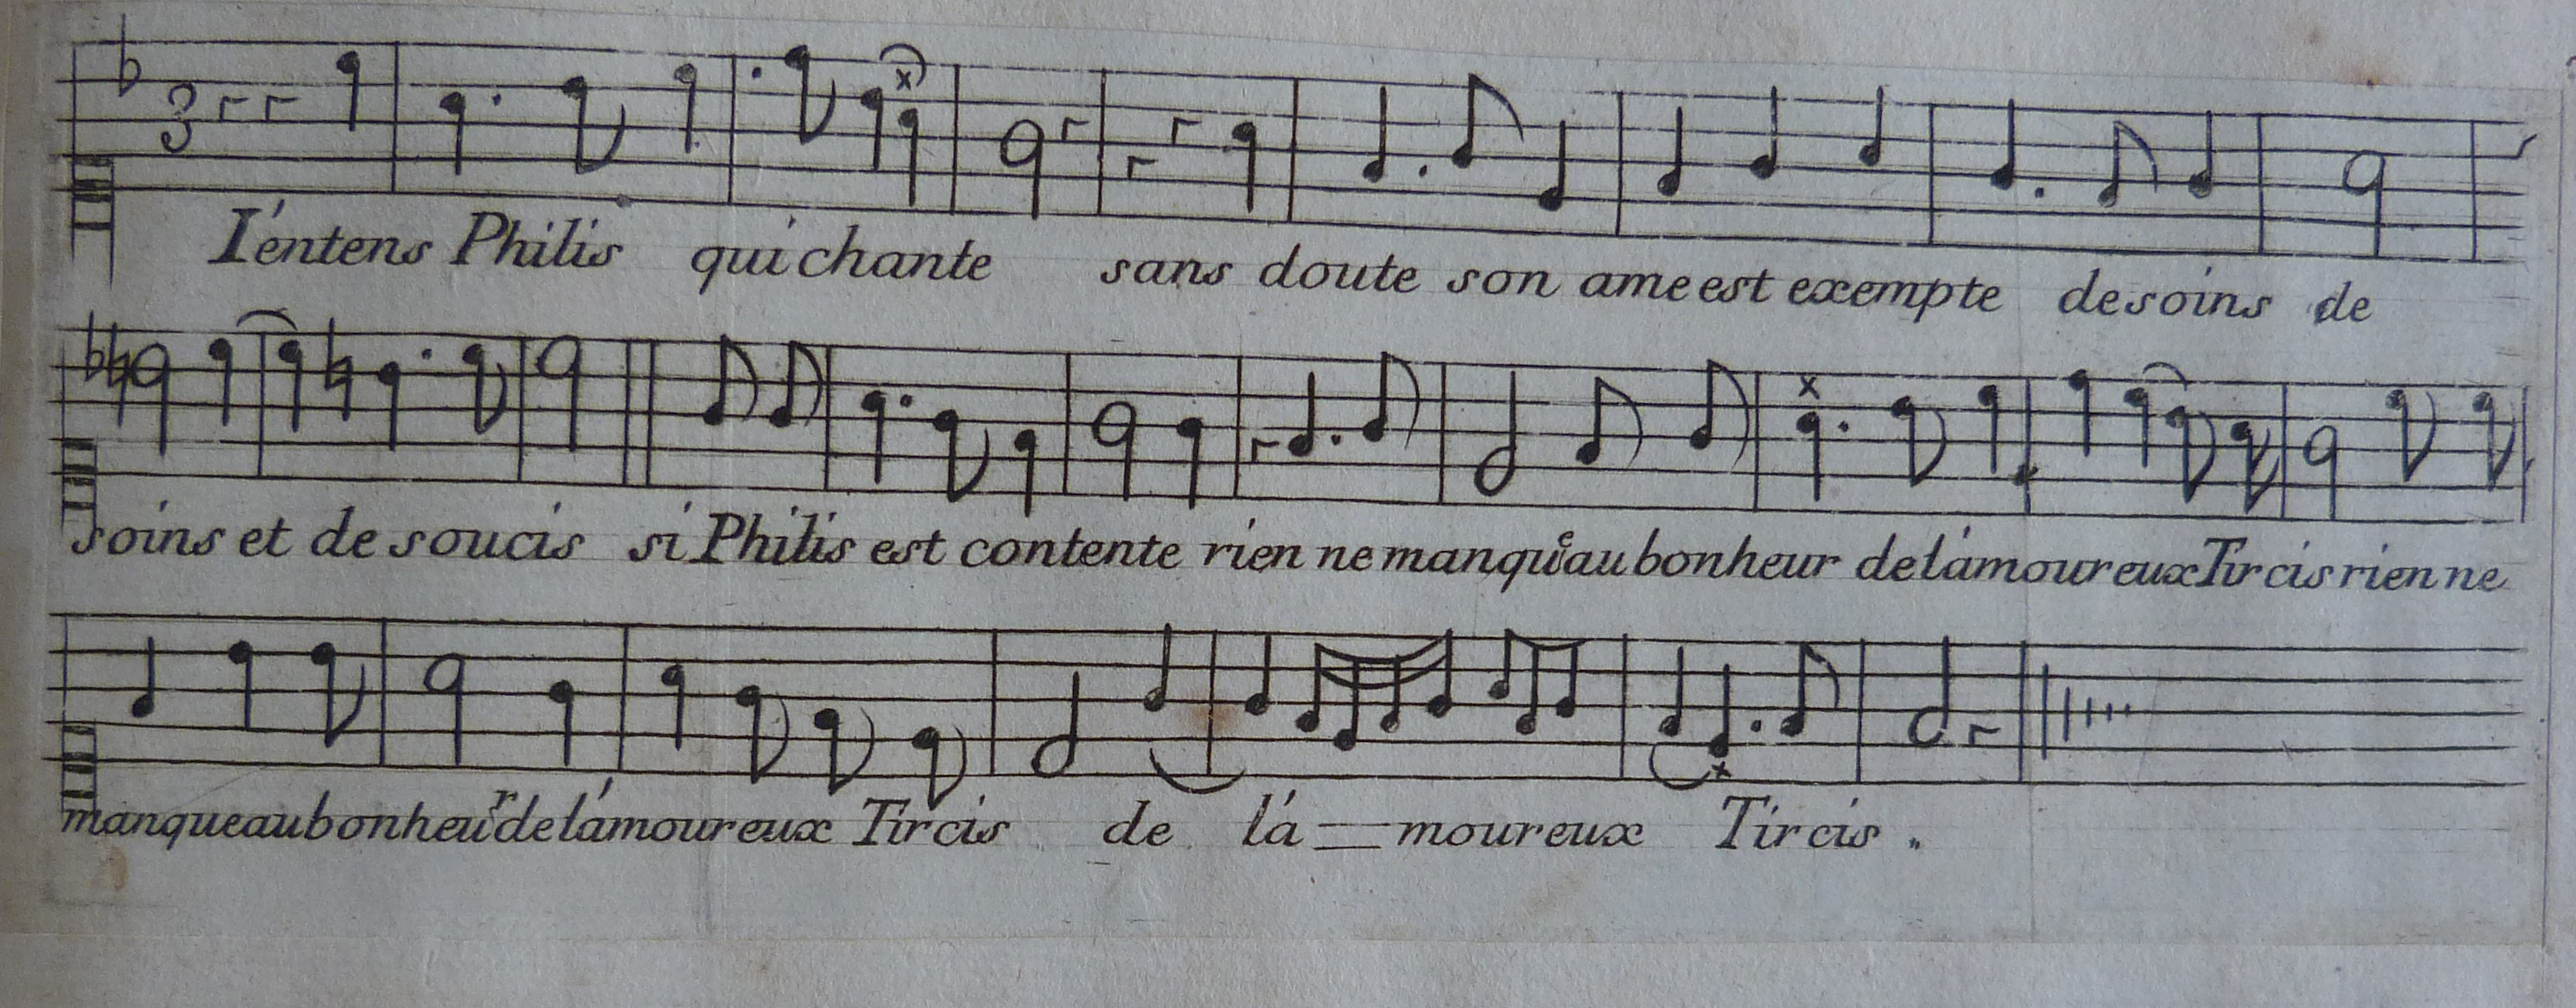 I'entens Philis qui chante sans doute son ame est exempte de soins de
soins et de soucis si Philis est contente rien ne manque au bonheur de l'amoureux Tircis rien ne
manque au bonheur de l'amoureux Tircis de l'a = moureux Tircis.